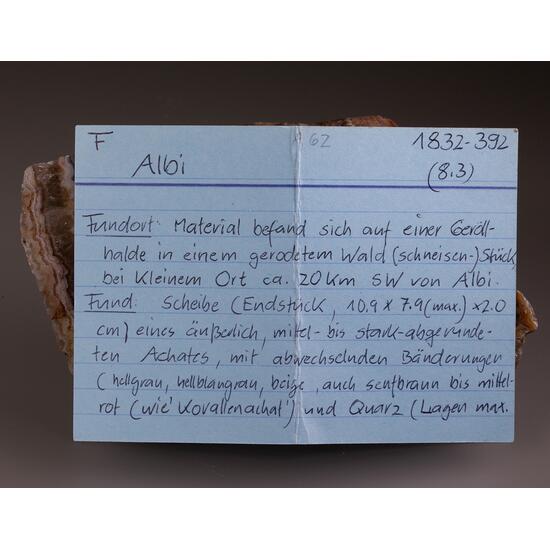 F 62 1832-392
Albi (8.3)
Fundort: Material befand sich auf einer Geröll-
halde in einem gerodetem Wald (schneisen-) Stück,
bei Kleinem Ort ca. 20 Km SW von Albi.
Fund: Scheibe (Endstück, 10.9 x 7.9 (max.) x 2.0
cm) eines äußerlich, mittel- bis stark-abgerunde-
ten Achates, mit abwechselnden Bänderungen
(hellgrau, hellblaugrau, beige, auch senfbraun bis mittel-
rot (wie 'Korallenachat') und Quarz (Lagen max.